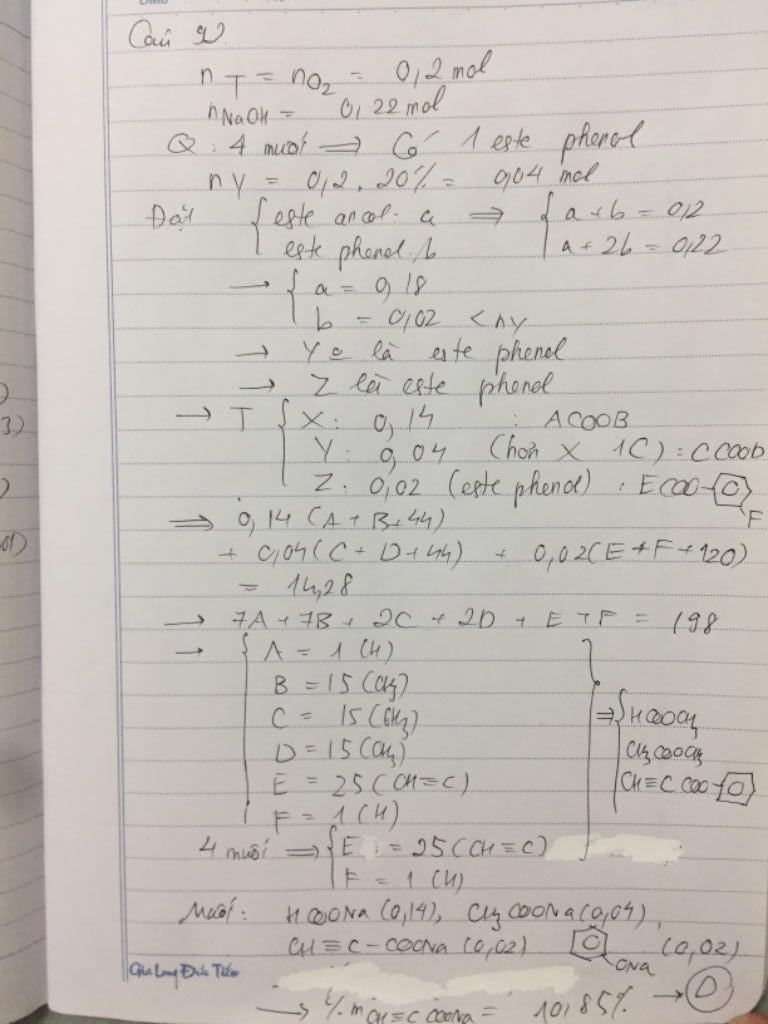 Câu
n T = nO₂ = 0,2 mol
nNaOH = 0,22 mol
Q : 4 muối ⟹ Có 1 este phenol
n Y = 0,2 . 20% = 0,04 mol
Đặt { este ancol : a ⟹ { a + b = 0,2
este phenol : b a + 2b = 0,22
→ { a = 0,18
b = 0,02 < nY
→ Y là este phenol
→ Z là este phenol
→ T { X : 0,14 : ACOOB
Y : 0,04 (hơn X 1C) : CCOOD
Z : 0,02 (este phenol) : ECOO-
F
⟹ 0,14 (A + B + 44)
+ 0,04 (C + D + 44) + 0,02 (E + F + 120)
= 14,28
→ 7A + 7B + 2C + 2D + E + F = 198
→ { A = 1 (H)
B = 15 (CH₃)
C = 15 (CH₃) ⟹ { HCOOCH₃
D = 15 (CH₃) CH₃COOCH₃
E = 25 (CH≡C) CH≡C COO-
F = 1 (H)
4 muối ⟹ { E = 25 (CH≡C)
F = 1 (H)
Muối : HCOONa (0,14), CH₃COONa (0,04),
CH≡C-COONa (0,02) (0,02)
ONa
Gia Long Đức Tiến
→ % mCH≡C COONa = 10,85% → D
3)
01)